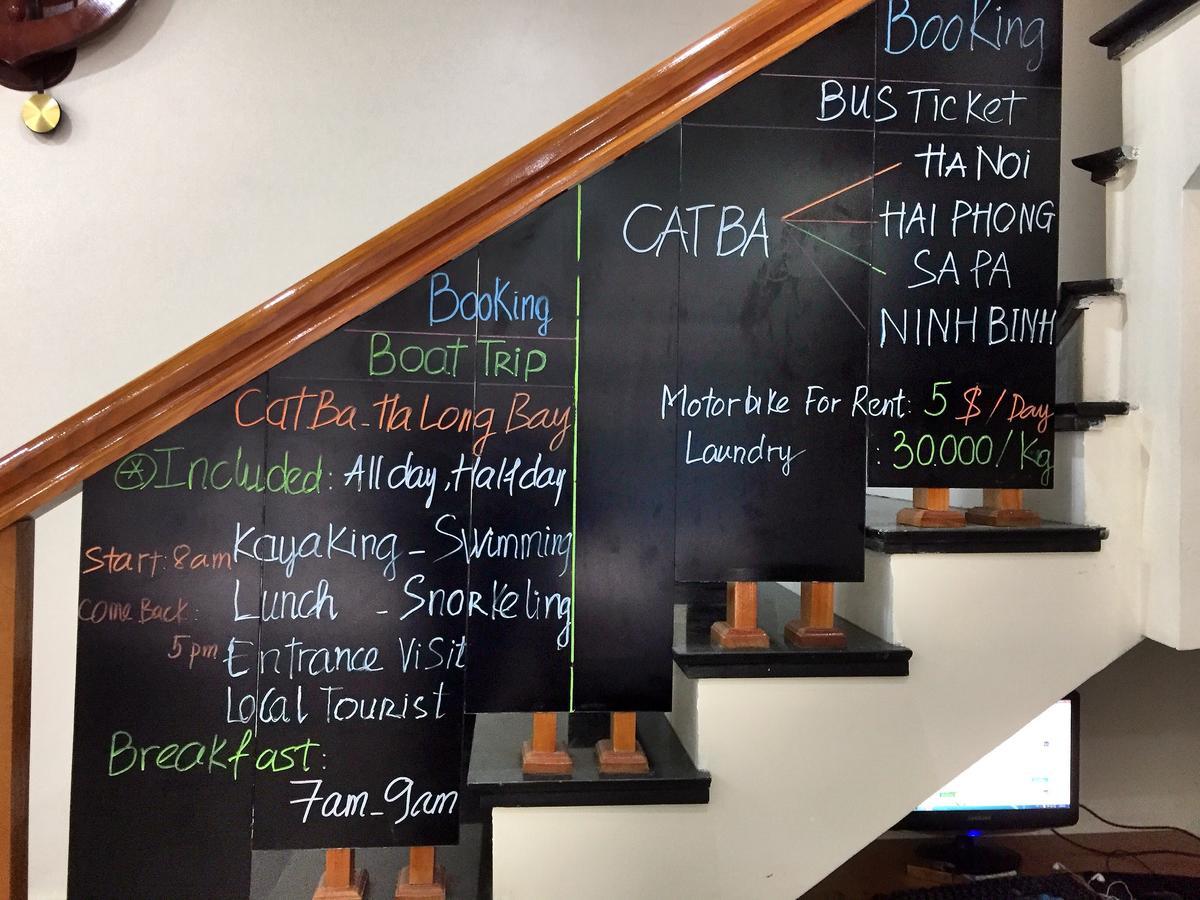 Booking
Boat Trip
Cat Ba - Ha Long Bay
Included: All day, Half day
Kayaking - Swimming
Start: 8am
Lunch - Snorkeling
Come Back:
5pm
Entrance Visit
Local Tourist
Breakfast:
7am - 9am
Booking
BUS Ticket
CAT BA
HA Noi
HAI PHONG
SA PA
NINH BINH
Motorbike For Rent: 5 $ / Day
Laundry : 30.000 / Kg